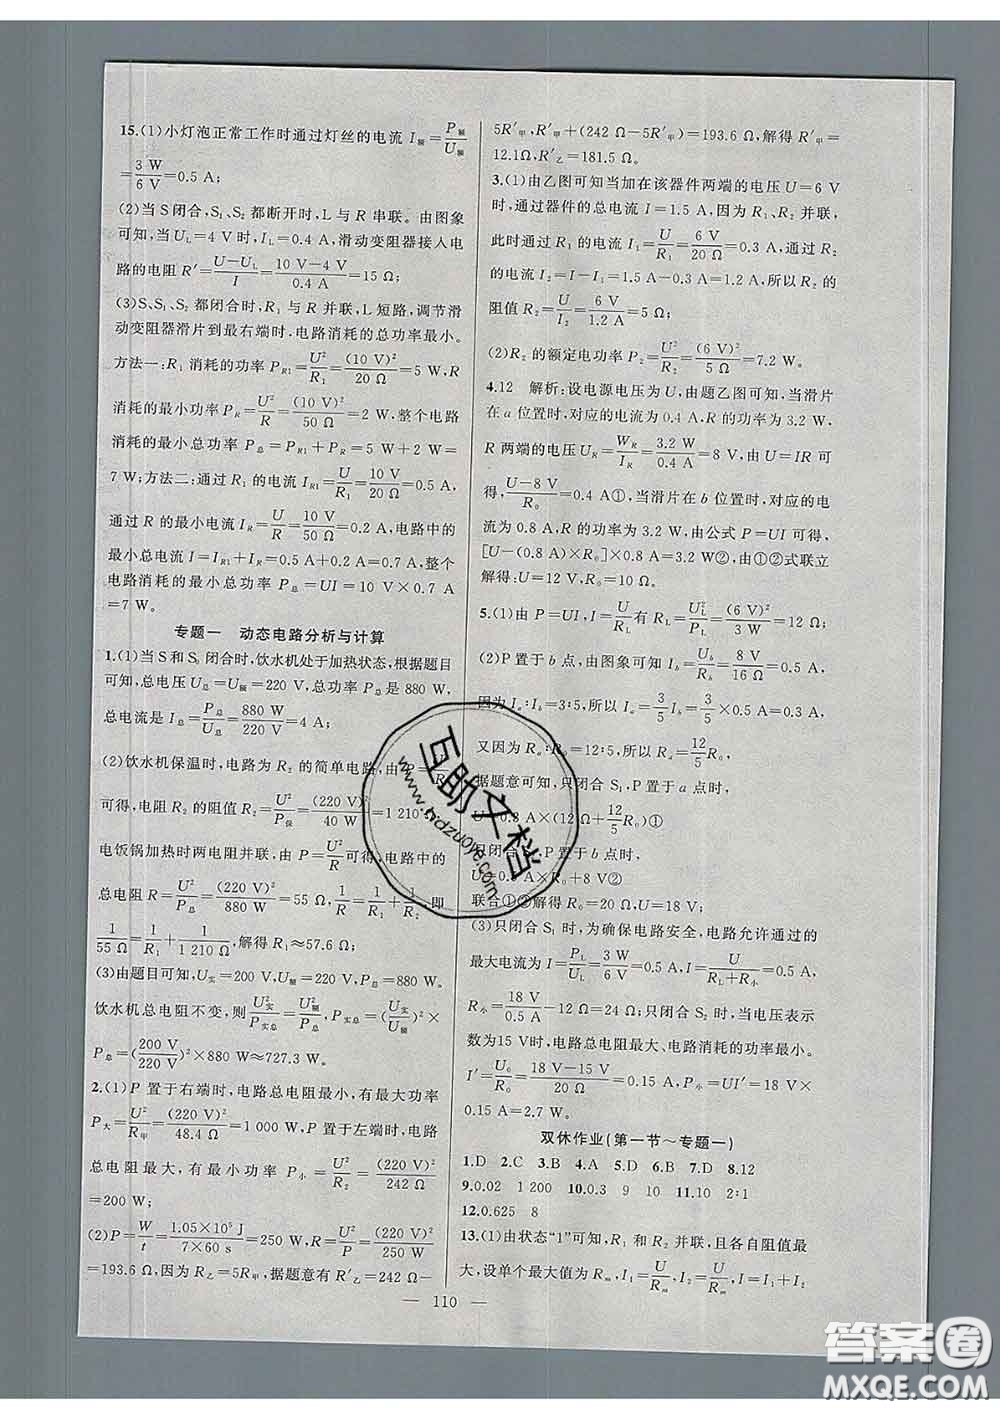 15.(1)小灯泡正常工作时通过灯丝的电流 I额=P额/U额
=3 W/6 V=0.5 A;
(2)当S闭合,S₁、S₂ 都断开时,L 与 R 串联。由图象
可知,当 UL=4 V时,IL=0.4 A,滑动变阻器接入电
路的电阻 R′=(U-UL)/I=(10 V-4 V)/0.4 A=15 Ω;
(3)S、S₁、S₂ 都闭合时,R₁ 与 R 并联,L 短路,调节滑
动变阻器滑片到最右端时,电路消耗的总功率最小。
方法一:R₁ 消耗的功率 PR1=U²/R₁=(10 V)²/20 Ω=5 W,R
消耗的最小功率 PR=U²/R=(10 V)²/50 Ω=2 W,整个电路
消耗的最小总功率 P总=PR1+PR=5 W+2 W=
7 W;方法二:通过 R₁ 的电流 IR1=U/R₁=10 V/20 Ω=0.5 A,
通过 R 的最小电流 IR=U/R=10 V/50 Ω=0.2 A,电路中的
最小总电流 I=IR1+IR=0.5 A+0.2 A=0.7 A,整个
电路消耗的最小总功率 P总=UI=10 V×0.7 A
=7 W。
专题一 动态电路分析与计算
1.(1)当S和S₀ 闭合时,饮水机处于加热状态,根据题目
可知,总电压 U总=U额=220 V,总功率 P总是 880 W,
总电流是 I总=P总/U总=880 W/220 V=4 A;
(2)饮水机保温时,电路为 R₂ 的简单电路,由 P=U²/R
可得,电阻 R₂ 的阻值 R₂=U²/P保=(220 V)²/40 W=1 210
电饭锅加热时两电阻并联,由 P=U²/R可得,电路中的
总电阻 R=U²/P总=(220 V)²/880 W=55 Ω,1/R=1/R₁+1/R₂,即
1/55 Ω=1/R₁+1/1 210 Ω,解得 R₁≈57.6 Ω;
(3)由题目可知,U实=200 V,U额=220 V,P总=880 W。
饮水机总电阻不变,则U实²/P实总=U额²/P总,P实总=(U实/U额)²×
P总=(200 V/220 V)²×880 W≈727.3 W。
2.(1)P 置于右端时,电路总电阻最小,有最大功率
P大=U²/R甲=(220 V)²/48.4 Ω=1 000 W,P 置于左端时,电路
总电阻最大,有最小功率 P小=U²/R₂=(220 V)²/242 Ω
=200 W;
(2)P=W/t=1.05×10⁵ J/7×60 s=250 W,R=U²/P=(220 V)²/250 W
=193.6 Ω,因为 R乙=5R甲,据题意有 R′乙=242 Ω-
5R′甲,R′甲+(242 Ω-5R′甲)=193.6 Ω,解得 R′甲=
12.1Ω,R′乙=181.5 Ω。
3.(1)由乙图可知当加在该器件两端的电压 U=6 V
时,通过器件的总电流 I=1.5 A,因为 R₁、R₂ 并联,
此时通过 R₁ 的电流 I₁=U/R₁=6 V/20 Ω=0.3 A,通过 R₂
的电流 I₂=I-I₁=1.5 A-0.3 A=1.2 A,所以 R₂ 的
阻值 R₂=U/I₂=6 V/1.2 A=5 Ω;
(2)R₂ 的额定电功率 P₂=U²/R₂=(6 V)²/5 Ω=7.2 W。
4.12 解析:设电源电压为 U,由题乙图可知,当滑片
在 a 位置时,对应的电流为0.4 A,R 的功率为 3.2 W,
R 两端的电压 UR=WR/IR=3.2 W/0.4 A=8 V,由 U=IR 可
得,(U-8 V)/R₀=0.4 A①,当滑片在 b 位置时,对应的电
流为 0.8 A,R 的功率为 3.2 W,由公式 P=UI 可得,
[U-(0.8 A)×R₀]×0.8 A=3.2 W②,由①②式联立
解得:U=12 V,R₀=10 Ω。
5.(1)由 P=UI,I=U/RL,RL=UL²/PL=(6 V)²/3 W=12 Ω;
(2)P 置于 b 点,由图象可知 Ib=Ub/Rb=8 V/16 Ω=0.5 A,
因为 Ia∶Ib=3∶5,所以 Ia=3/5Ib=3/5×0.5 A=0.3 A,
又因为 Ra∶R₀=12∶5,所以 Ra=12/5R₀,
据题意可知,只闭合 S₁,P 置于 a 点时,
U=0.3 A×(R₀+12/5R₀)①
只闭合 S₁,P 置于 b 点时,
U=0.5 A×R₀+8 V②
联合①②解得 R₀=20 Ω,U=18 V;
(3)只闭合 S₁ 时,为确保电路安全,电路允许通过的
最大电流为 I=PL/UL=3 W/6 V=0.5 A,I=U/(RL+R小)
R小=18 V/0.5 A-12 Ω=24 Ω;只闭合 S₂ 时,当电压表示
数为15 V时,电路总电阻最大、电路消耗的功率最小。
I′=U₀/R₀=(18 V-15 V)/20 Ω=0.15 A,P小=UI′=18 V×
0.15 A=2.7 W。
双休作业(第一节~专题一)
1.D 2.C 3.B 4.A 5.D 6.B 7.D 8.12
9.0.02 1 200 10.0.3 9 10 11.10 2∶1
12.0.625 8
13.(1)由状态“1”可知,R₁ 和 R₂ 并联,且各自阻值最
大,设单个最大值为 Rm,I₁=U/Rm,I₂=U/Rm,I=I₁+I₂
— 110 —
互助文档
www.hdzuoye.com
答案圈
MXQE.COM